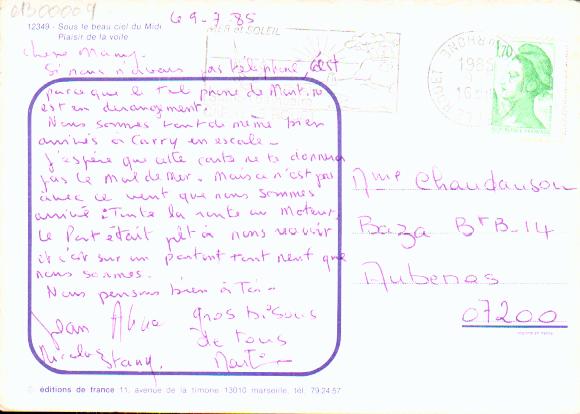 0B00009
12349 - Sous le beau ciel du Midi
Plaisir de la voile
le 9-7-85
MER ET SOLEIL
1,70
1985
Chère Mamy.
Si nous n'avons pas téléphoné, c'est
parce que le téléphone de Mart. 
est en dérangement.
Nous sommes tout de même bien
arrivés à Carry en escale.
J'espère que cette carte ne te donnera
pas le Mal de Mer. Mais ce n'est pas
avec ce vent que nous sommes
arrivé. Toute la route au Moteur.
Le Port était prêt à nous revoir
et c'est sur un 
nous sommes.
Nous pensons bien à Toi.
Jean
gros bisous
de tous
Nicolas
Mme Chaudanson
Baza Bt B-14
Aubenas
07200
éditions de france 11, avenue de la timone 13010 marseille, tél. 79-24-57